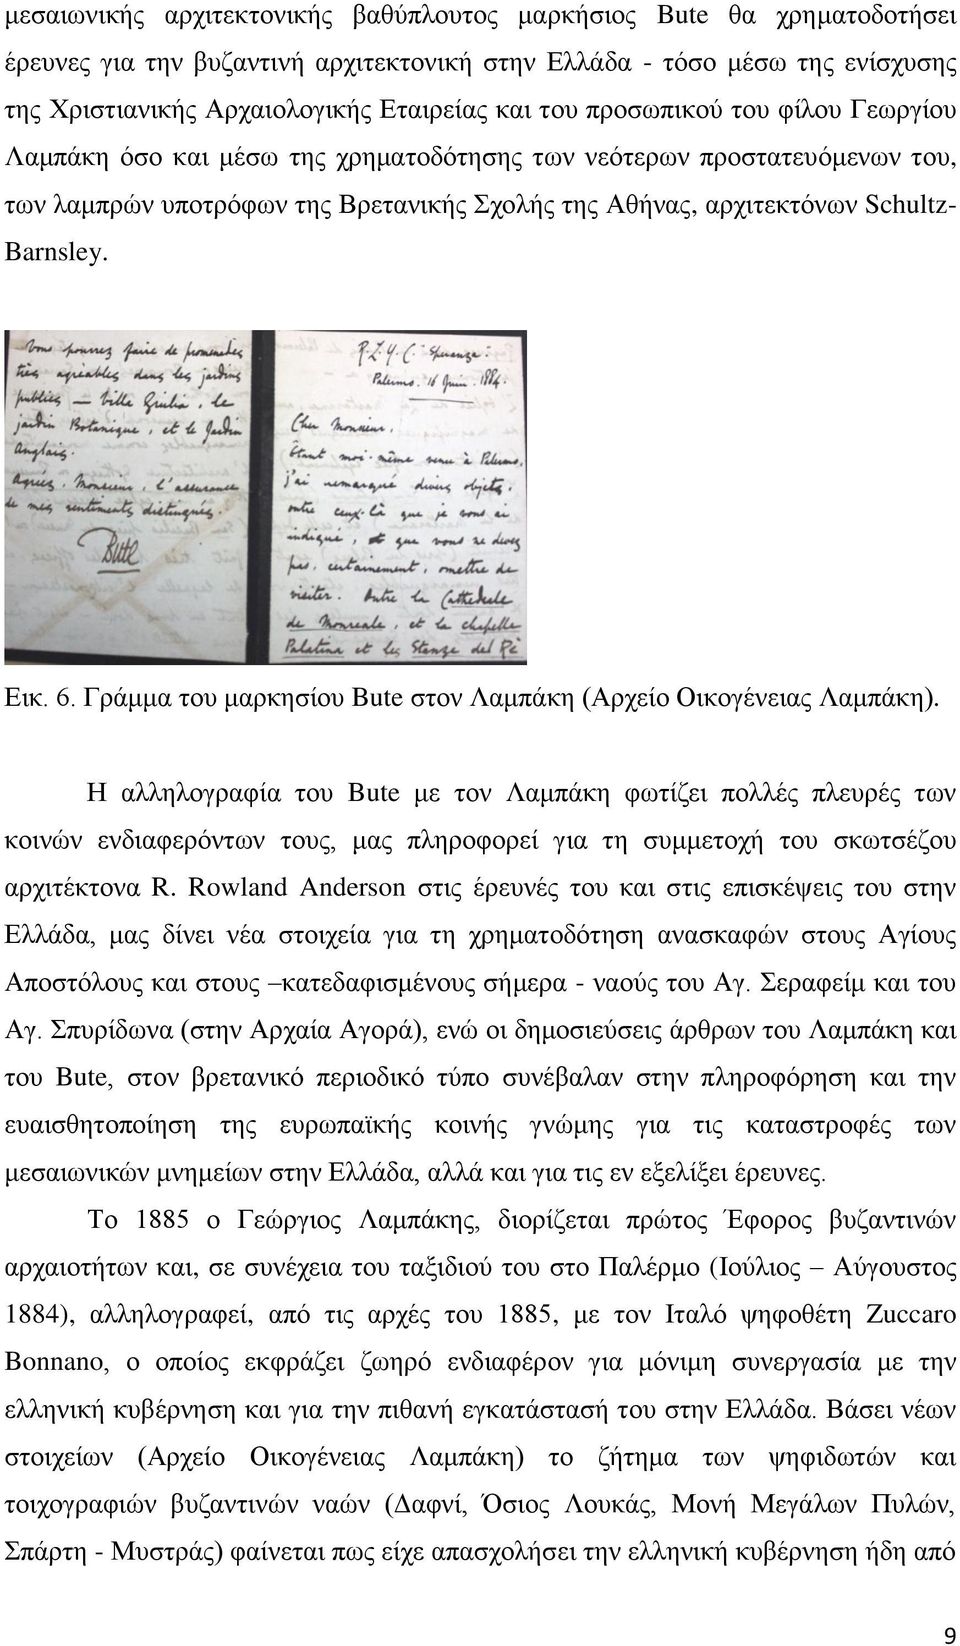 μεσαιωνικής αρχιτεκτονικής βαθύπλουτος μαρκήσιος Bute θα χρηματοδοτήσει
έρευνες για την βυζαντινή αρχιτεκτονική στην Ελλάδα - τόσο μέσω της ενίσχυσης
της Χριστιανικής Αρχαιολογικής Εταιρείας και του προσωπικού του φίλου Γεωργίου
Λαμπάκη όσο και μέσω της χρηματοδότησης των νεότερων προστατευόμενων του,
των λαμπρών υποτρόφων της Βρετανικής Σχολής της Αθήνας, αρχιτεκτόνων Schultz-
Barnsley.
Vous pourrez faire de promenades
très agréables dans les jardins
publics — Villa Giulia, le
jardin Botanique, et le Jardin
Anglais.
Agréez, Monsieur, l'assurance
de mes sentiments distingués.
Bute
R.Z.Y.C. "Speranza":
Palermo. 16 Juin. 1884.
Cher Monsieur,
Étant moi-même venu à Palermo,
j'ai remarqué divers objets,
outre ceux-là que je vous ai
indiqué, et que vous ne devez
pas, certainement, omettre de
visiter. Outre la Cathedrale
de Monreale, et la chapelle
Palatina et les Stanze del Rè
Εικ. 6. Γράμμα του μαρκησίου Bute στον Λαμπάκη (Αρχείο Οικογένειας Λαμπάκη).
Η αλληλογραφία του Bute με τον Λαμπάκη φωτίζει πολλές πλευρές των
κοινών ενδιαφερόντων τους, μας πληροφορεί για τη συμμετοχή του σκωτσέζου
αρχιτέκτονα R. Rowland Anderson στις έρευνές του και στις επισκέψεις του στην
Ελλάδα, μας δίνει νέα στοιχεία για τη χρηματοδότηση ανασκαφών στους Αγίους
Αποστόλους και στους –κατεδαφισμένους σήμερα - ναούς του Αγ. Σεραφείμ και του
Αγ. Σπυρίδωνα (στην Αρχαία Αγορά), ενώ οι δημοσιεύσεις άρθρων του Λαμπάκη και
του Bute, στον βρετανικό περιοδικό τύπο συνέβαλαν στην πληροφόρηση και την
ευαισθητοποίηση της ευρωπαϊκής κοινής γνώμης για τις καταστροφές των
μεσαιωνικών μνημείων στην Ελλάδα, αλλά και για τις εν εξελίξει έρευνες.
Το 1885 ο Γεώργιος Λαμπάκης, διορίζεται πρώτος Έφορος βυζαντινών
αρχαιοτήτων και, σε συνέχεια του ταξιδιού του στο Παλέρμο (Ιούλιος – Αύγουστος
1884), αλληλογραφεί, από τις αρχές του 1885, με τον Ιταλό ψηφοθέτη Zuccaro
Bonnano, ο οποίος εκφράζει ζωηρό ενδιαφέρον για μόνιμη συνεργασία με την
ελληνική κυβέρνηση και για την πιθανή εγκατάστασή του στην Ελλάδα. Βάσει νέων
στοιχείων (Αρχείο Οικογένειας Λαμπάκη) το ζήτημα των ψηφιδωτών και
τοιχογραφιών βυζαντινών ναών (Δαφνί, Όσιος Λουκάς, Μονή Μεγάλων Πυλών,
Σπάρτη - Μυστράς) φαίνεται πως είχε απασχολήσει την ελληνική κυβέρνηση ήδη από
9